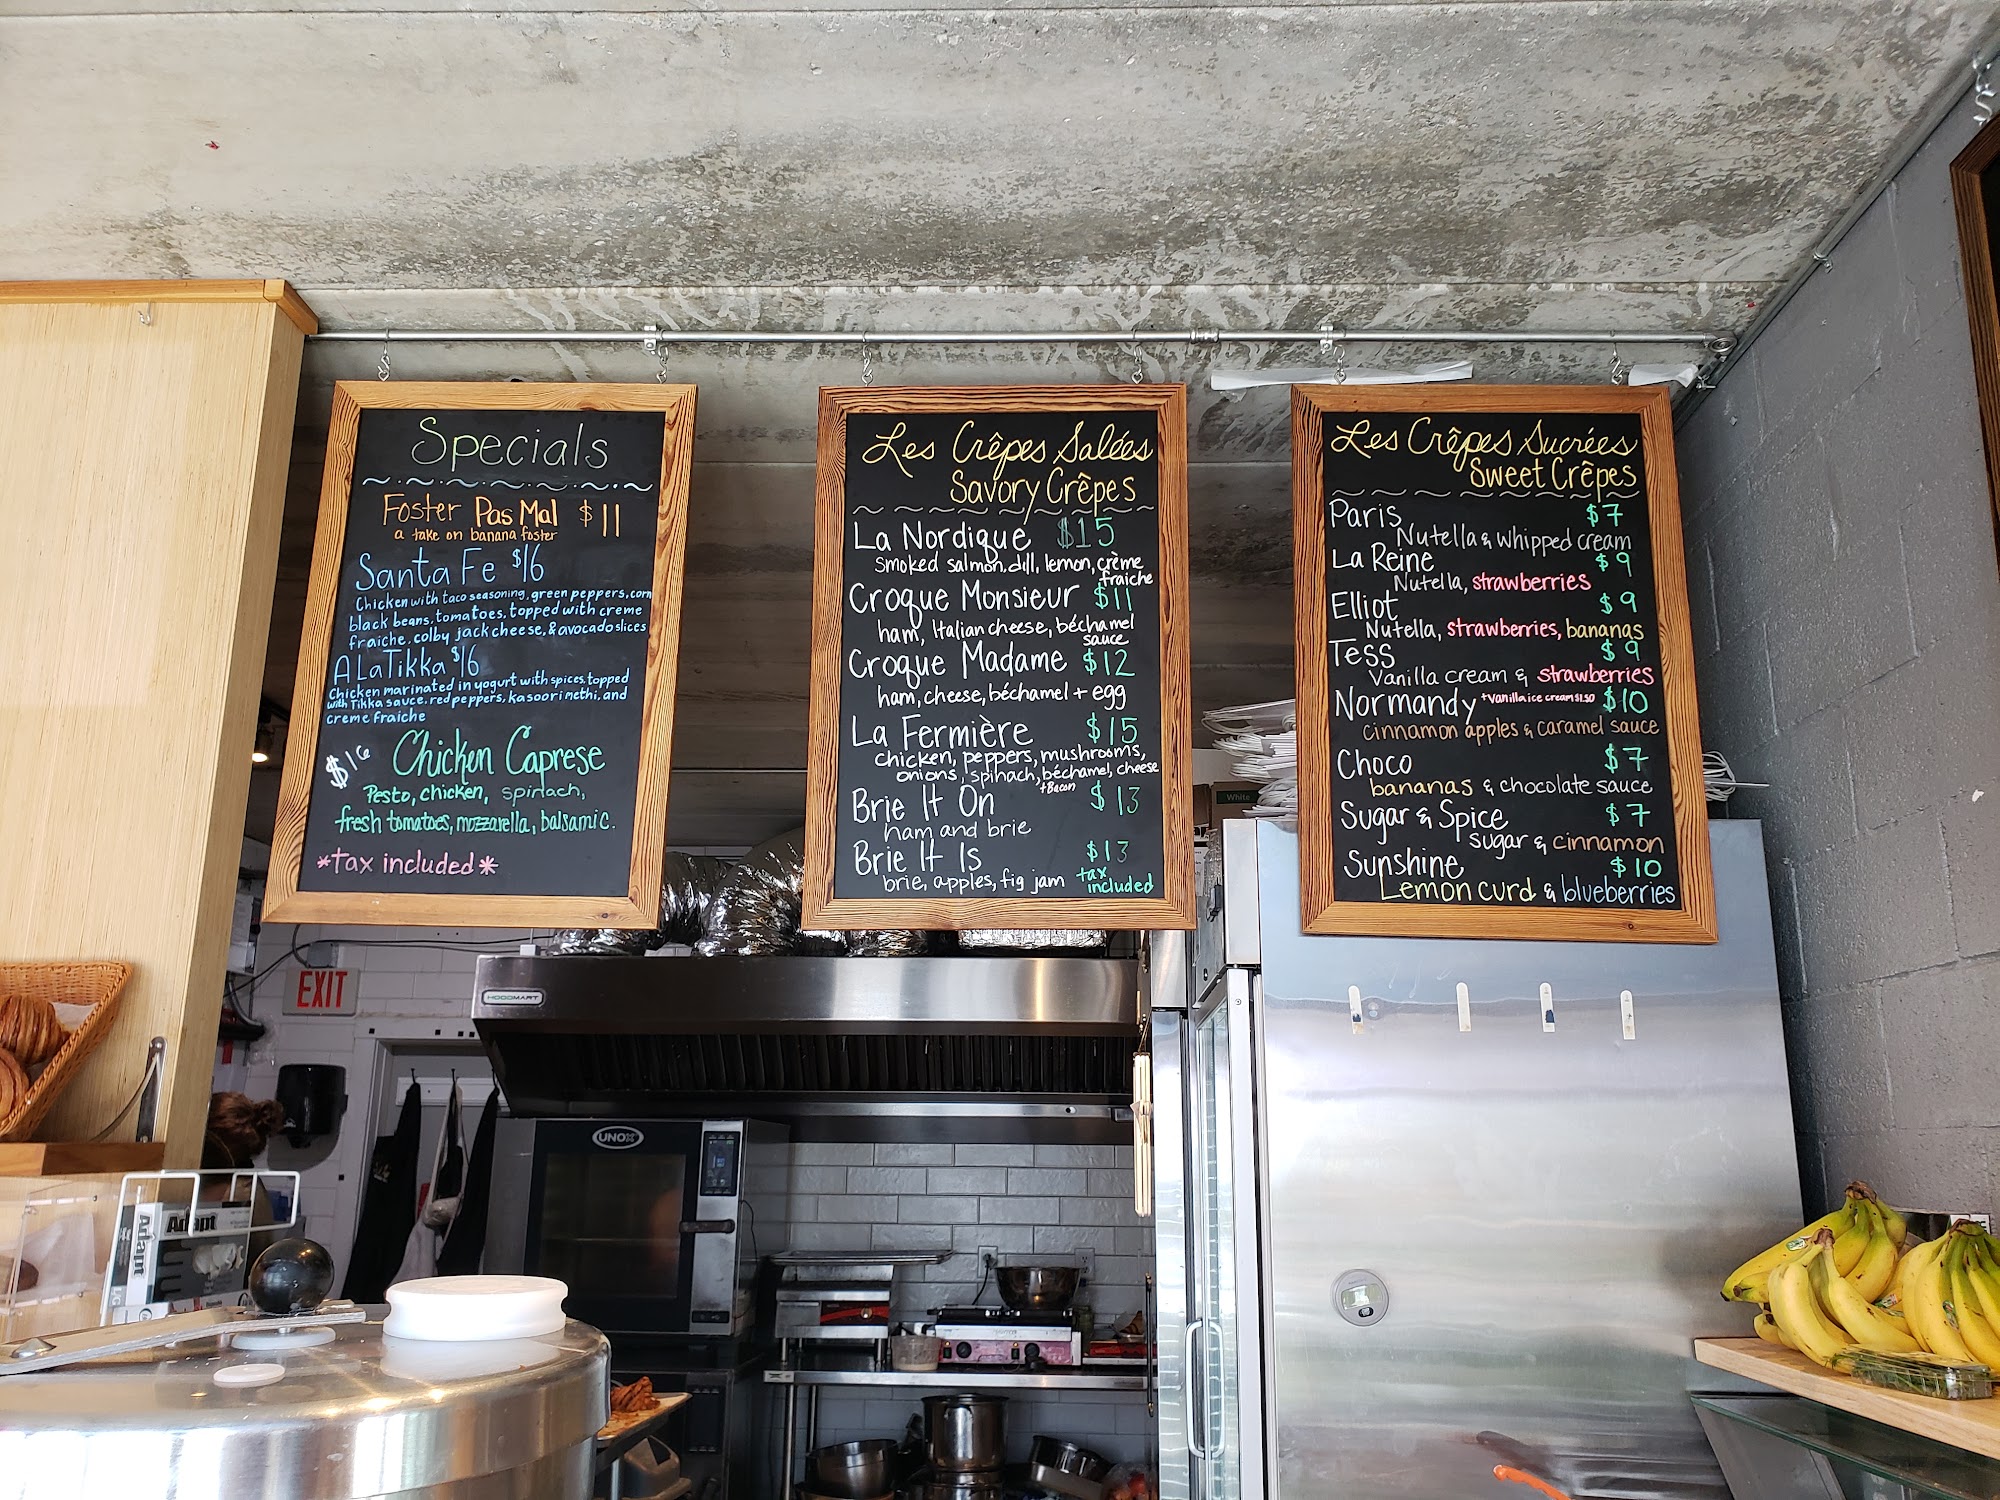 Specials
Foster Pas Mal $11
a take on banana foster
Santa Fe $16
Chicken with taco seasoning, green peppers, corn
black beans, tomatoes, topped with creme
fraiche, colby jack cheese, & avocado slices
A La Tikka $16
Chicken marinated in yogurt with spices, topped
with Tikka sauce, red peppers, kasoori methi, and
creme fraiche
$16 Chicken Caprese
Pesto, chicken, spinach,
fresh tomatoes, mozzarella, balsamic.
*tax included*
Les Crêpes Salées
Savory Crêpes
La Nordique $15
smoked salmon, dill, lemon, crème
fraiche
Croque Monsieur $11
ham, Italian cheese, béchamel
sauce
Croque Madame $12
ham, cheese, béchamel + egg
La Fermière $15
chicken, peppers, mushrooms,
onions, spinach, béchamel, cheese
+Bacon
Brie It On $13
ham and brie
Brie It Is $13
brie, apples, fig jam tax
included
Les Crêpes Sucrées
Sweet Crêpes
Paris $7
Nutella & whipped cream
La Reine $9
Nutella, strawberries
Elliot $9
Nutella, strawberries, bananas
Tess $9
Vanilla cream & strawberries
Normandy +vanilla ice cream $1.50 $10
cinnamon apples & caramel sauce
Choco $7
bananas & chocolate sauce
Sugar & Spice $7
sugar & cinnamon
Sunshine $10
Lemon curd & blueberries
EXIT
HOODMART
UNOX
White
Adapt
Adapt